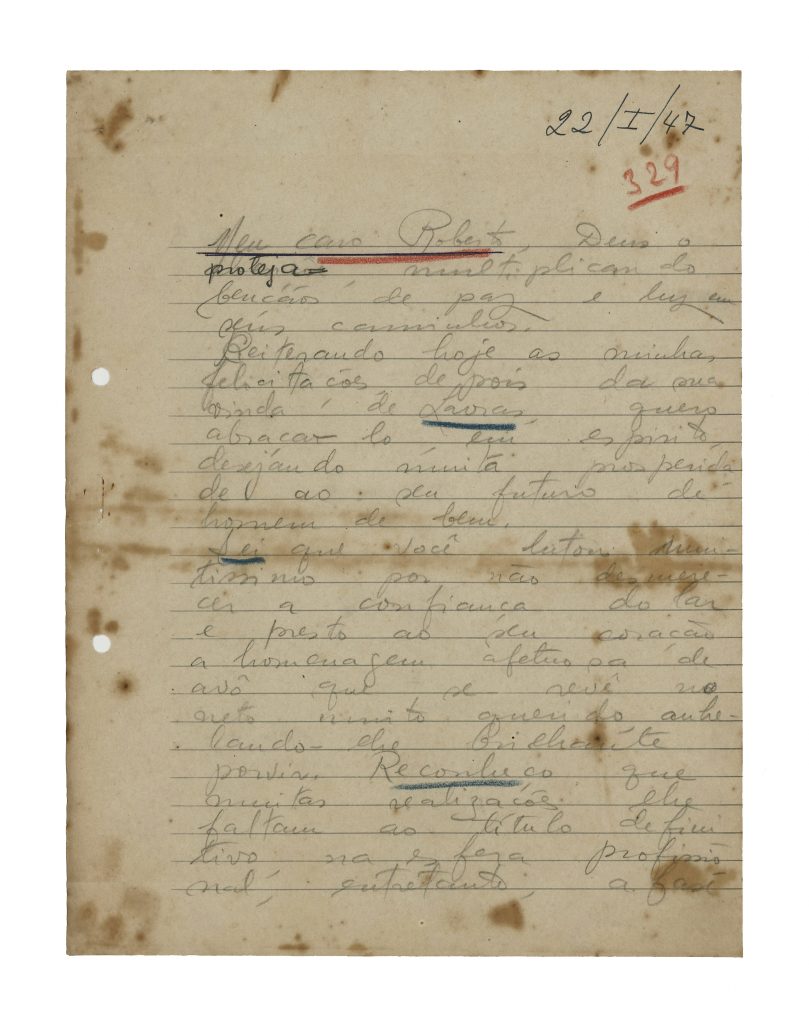 22/I/47
329
Meu caro Roberto, Deus o
proteja multiplicando
bençãos de paz e luz em
seus caminhos.
Reiterando hoje as minhas
felicitações, depois da sua
vinda de Lavras, quero
abraca-lo em espirito,
desejando muita prosperida
de ao seu futuro de
homem de bem.
Sei que você lutou mui-
tissimo por não desmere-
cer a confiança do lar
e presto ao seu coração
a homenagem afetuosa de
avô que se revê no
neto muito querido anhe-
lando-lhe brilhante
porvir. Reconheço que
muitas realizações lhe
faltam ao título defini
tivo na esfera profissio
nal, entretanto, a fase